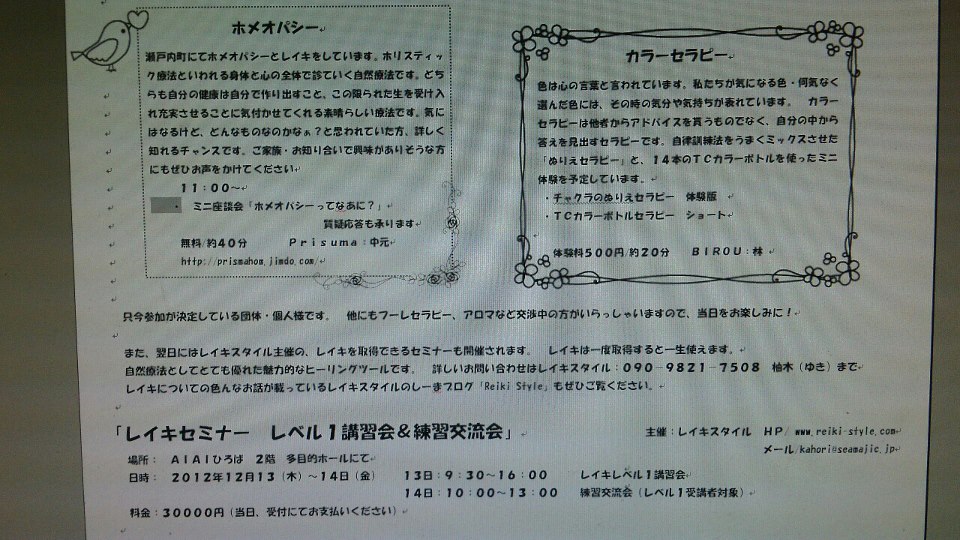 ホメオパシー
瀬戸内町にてホメオパシーとレイキをしています。ホリスティッ
ク療法といわれる身体と心の全体で診ていく自然療法です。どち
らも自分の健康は自分で作り出すこと、この限られた生を受け入
れ充実させることに気付かせてくれる素晴らしい療法です。気に
はなるけど、どんなものなのかなぁ？と思われていた方、詳しく
知れるチャンスです。ご家族・お知り合いで興味がありそうな方
にもぜひお声をかけてください
１１：００～
ミニ座談会「ホメオパシーってなあに？」
質疑応答も承ります
無料/約４０分　Ｐｒｉｓｕｍａ：中元
http://prismahom.jimdo.com/
カラーセラピー
色は心の言葉と言われています。私たちが気になる色・何気なく
選んだ色には、その時の気分や気持ちが表れています。　カラー
セラピーは他者からアドバイスを貰うものでなく、自分の中から
答えを見出すセラピーです。自律訓練法をうまくミックスさせた
「ぬりえセラピー」と、１４本のＴＣカラーボトルを使ったミニ
体験を予定しています。
・チャクラのぬりえセラピー　体験版
・ＴＣカラーボトルセラピー　ショート
体験料５００円/約２０分　ＢＩＲＯＵ：林
只今参加が決定している団体・個人様です。　他にもフーレセラピー、アロマなど交渉中の方がいらっしゃいますので、当日をお楽しみに！
また、翌日にはレイキスタイル主催の、レイキを取得できるセミナーも開催されます。　レイキは一度取得すると一生使えます。
自然療法としてとても優れた魅力的なヒーリングツールです。　詳しいお問い合わせはレイキスタイル：０９０－９８２１－７５０８　柚木（ゆき）まで
レイキについての色んなお話が載っているレイキスタイルのしーまブログ「Reiki Style」もぜひご覧ください。
「レイキセミナー　レベル１講習会＆練習交流会」
主催：レイキスタイル　ＨＰ/ www.reiki-style.com
メール/kahori@seamajic.jp
場所：　ＡＩＡＩひろば　２階　多目的ホールにて
日時：　２０１２年１２月１３（木）～１４日（金）　１３日：９：３０～１６：００　レイキレベル１講習会
１４日：１０：００～１３：００　練習交流会（レベル１受講者対象）
料金：３００００円（当日、受付にてお支払いください）